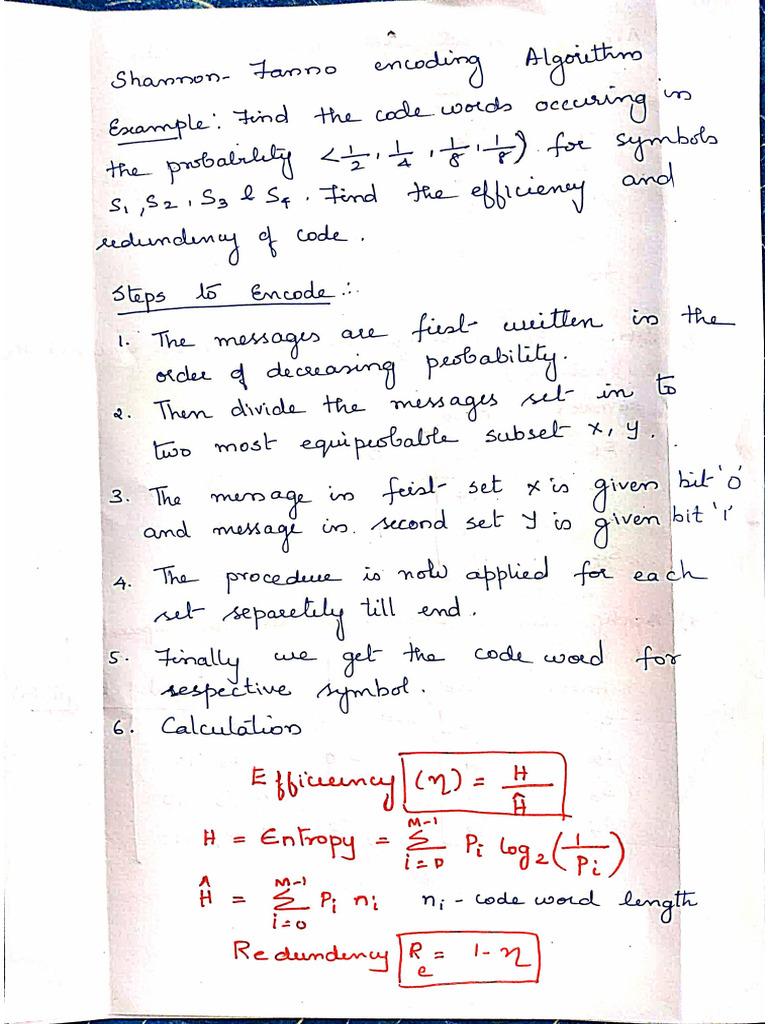 Shannon-Fanno encoding Algorithm
Example: Find the code words occuring in
the probability <1/2, 1/4, 1/8, 1/8) for symbols
S1, S2, S3 & S4. Find the efficiency and
redundency of code.
Steps to Encode:.
1. The messages are first written in the
order of decreasing probability.
2. Then divide the messages set in to
two most equiprobable subset x, y.
3. The message in first set x is given bit '0'
and message in second set y is given bit '1'
4. The procedure is now applied for each
set separetely till end.
5. Finally we get the code word for
respective symbol.
6. Calculation
Efficiency (η) = H/Ĥ
H = Entropy = Σ_{i=0}^{M-1} Pi log2(1/Pi)
Ĥ = Σ_{i=0}^{M-1} Pi ni    ni - code word length
Redundency Re = 1 - η